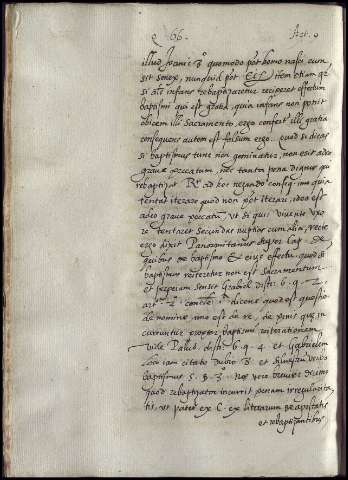 66. Act. 9
illud Joanis 3º quomodo pot homo nasci cum
sit senex, nunquid pot Etc Item etiam qª
si alr infans rebaptizaretur reciperet effectum
baptismi qui est gratia, quia infans non ponit
obicem illi Sacramento, ergo confert illi gratia
consequens autem est falsum ergo. quod si dicas
si baptismus tunc non nominatur, non erit adeo
grave peccatum, nec tanta pena dignus qui
rebaptizat. Rº ad hoc negando conseqª imo quia
tentat iterare quod non pot iterari, idea est
adeo grave peccatu, ut si quis vivente uxo
re tentaret secundas nuptias cum alia, recte
ergo dixit Panormitanus super Cap. de
quibus de baptismo & eius effectu, quod si
baptismus reiteretur non est Sacramentum
et perperam sensit Gabriel disti. 6. q. 2
art. dicens quod est questio
de nomine imo est de re, de penis que in
curruntur propter baptismi reiterationem
Vide Palud. disti. 6. q. 4 et Gabrielem
loco iam citato dubio 3 et verbo
baptismus 5. § 3º breviter dicimus
quod rebaptizator incurrit penam irregularita
tis, ut patet ex C. ex literarum de apostatis
et rebaptizantibus